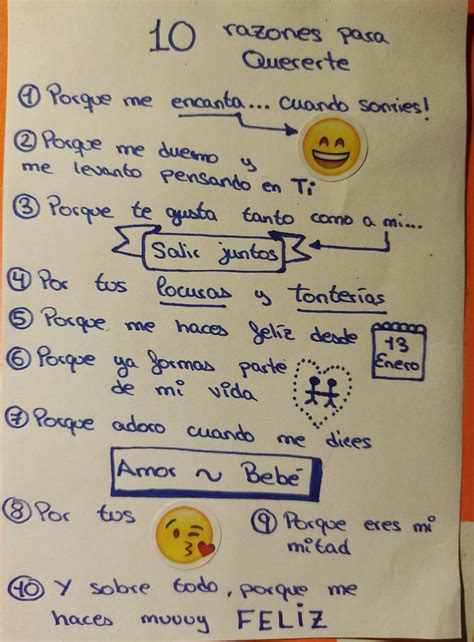 10 razones para
Quererte
① Porque me encanta... cuando sonries!
② Porque me duermo y
me levanto pensando en Ti
③ Porque te gusta tanto como a mi...
Salir juntos
④ Por tus locuras y tonterías
⑤ Porque me haces feliz desde
13
Enero
⑥ Porque ya formas parte
de mi vida
⑦ Porque adoro cuando me dices
Amor ~ Bebé
⑧ Por tus
⑨ Porque eres mi
mitad
⑩ Y sobre todo, porque me
haces muuuy FELIZ